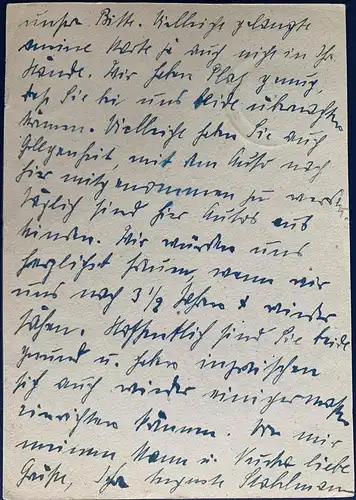 unsre Bitte. Vielleicht gelangte
meine Karte ja auch nicht in Ihre
Hände. Wir haben Platz genug,
daß Sie bei uns beide übernachten
können. Vielleicht haben Sie auch
Gelegenheit mit dem Auto nach
hier mitgenommen zu werden.
Täglich sind hier Autos aus
Minden. Wir würden uns
herzlichst freuen, wenn wir
uns nach 3 1/2 Jahren wieder
sähen. Hoffentlich sind Sie beide
gesund u. haben inzwischen
sich auch wieder einigermaßen
einrichten können. Von mir
meinem Mann u. liebe
Grüße, Ihre Auguste Stahlmann